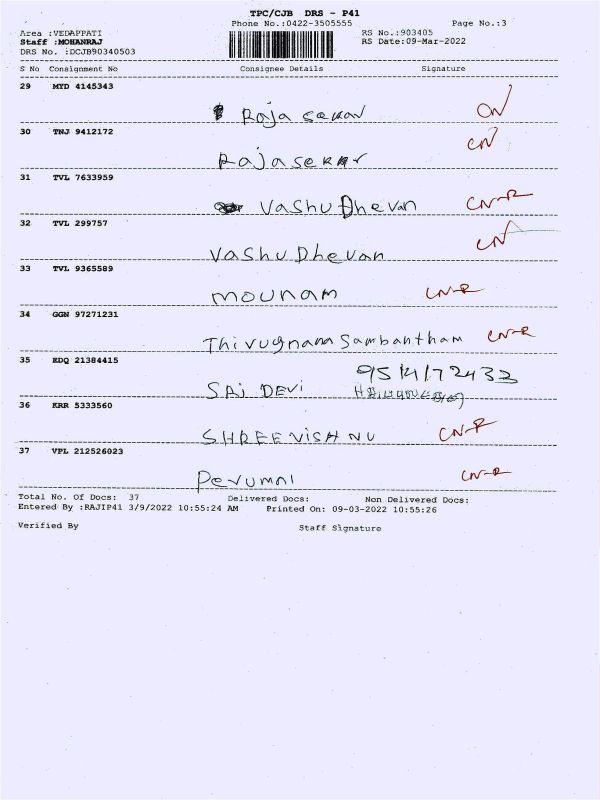 TPC/CJB DRS - P41
Phone No.:0422-3505555 Page No.:3
Area :VEDAPPATI RS No.:903405
Staff :MOHANRAJ RS Date:09-Mar-2022
DRS No. :DCJB90340503
S No Consignment No Consignee Details Signature
29 MYD 4145343
Raja sekar CN
30 TNJ 9412172 CN
Rajasekar
31 TVL 7633959
Vashu Dhevan CN-R
32 TVL 299757 CN
Vashu Dhevan
33 TVL 9365589
mounam CN-R
34 GGN 97271231
Thivugnana Sambantham CN-R
35 EDQ 21384415
SAI DEVI
36 KRR 5333560
SHREEVISHNU CN-R
37 VPL 212526023
Perumal CN-R
Total No. Of Docs: 37 Delivered Docs: Non Delivered Docs:
Entered By :RAJIP41 3/9/2022 10:55:24 AM Printed On: 09-03-2022 10:55:26
Verified By Staff Signature